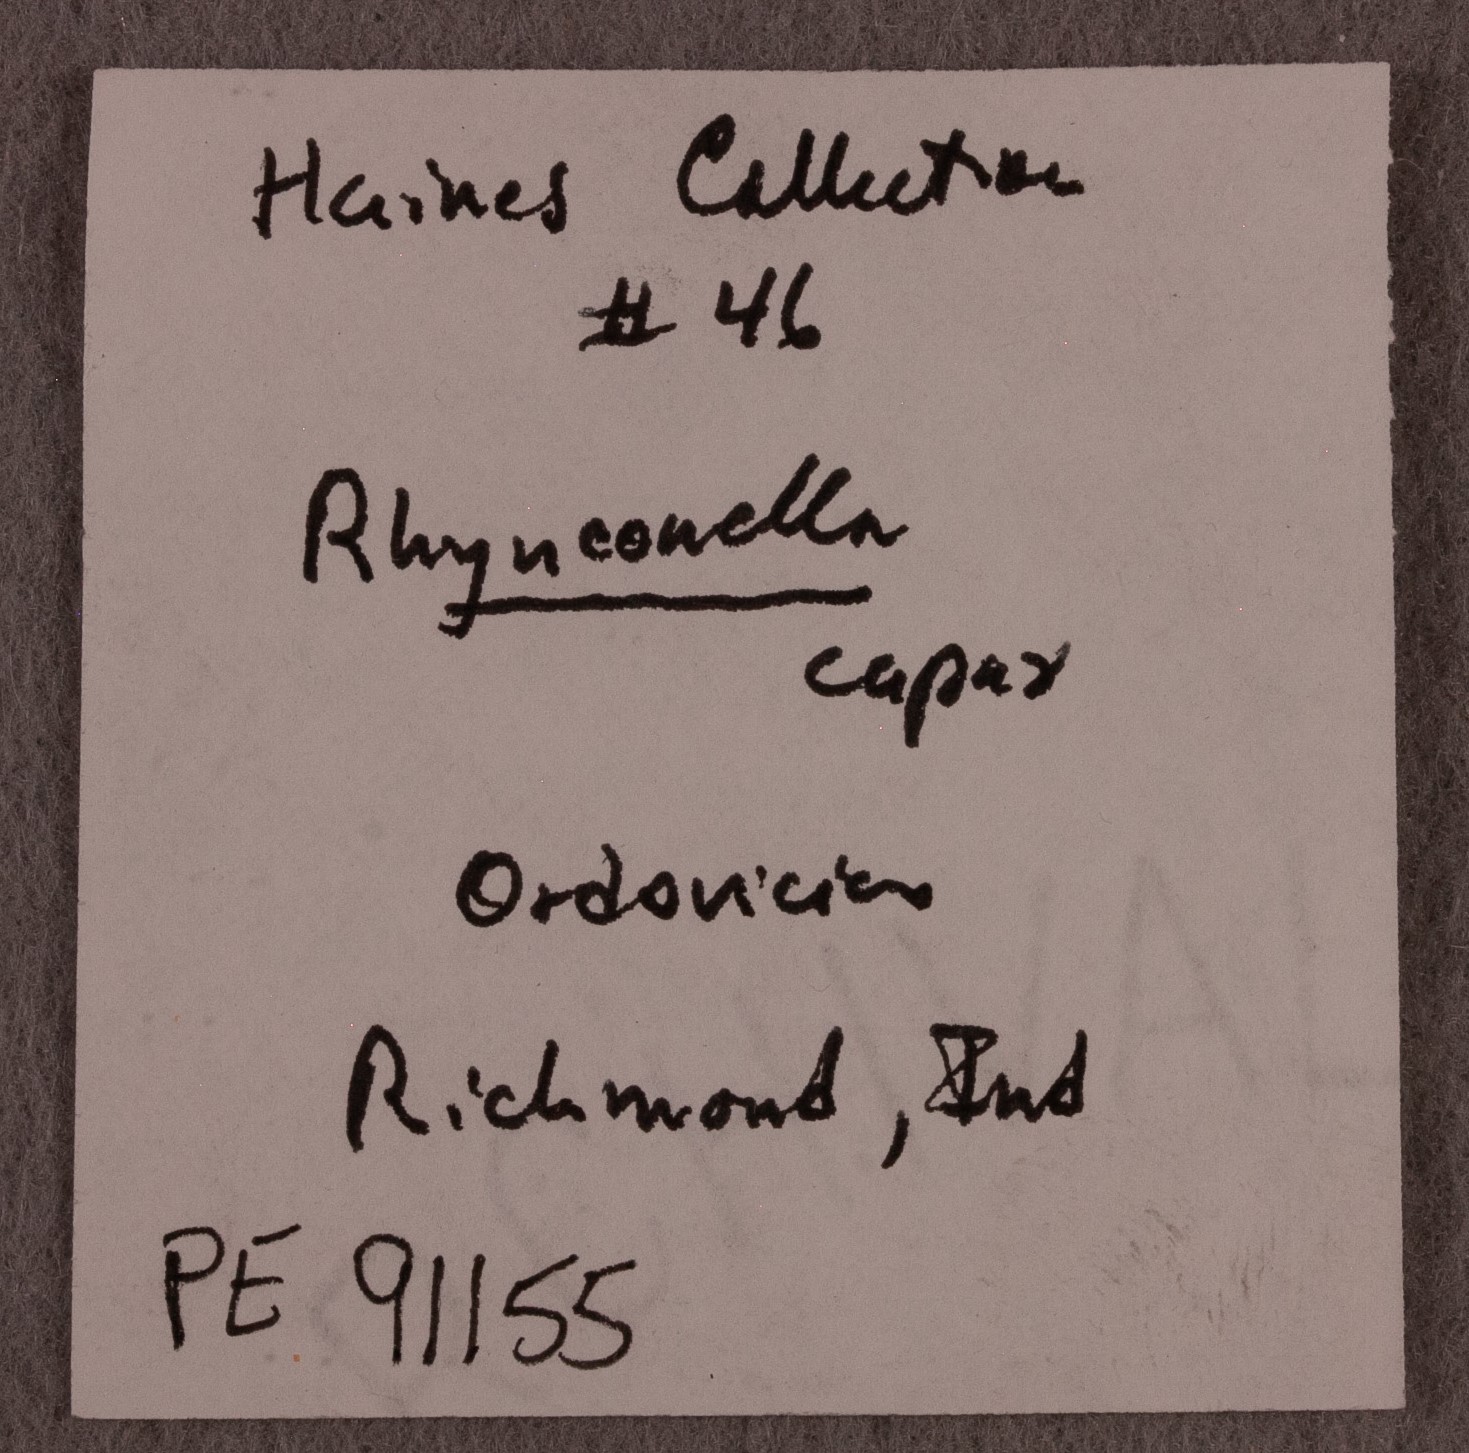 Haines Collection
# 46
Rhynconella
capax
Ordovician
Richmond, Ind
PE 91155